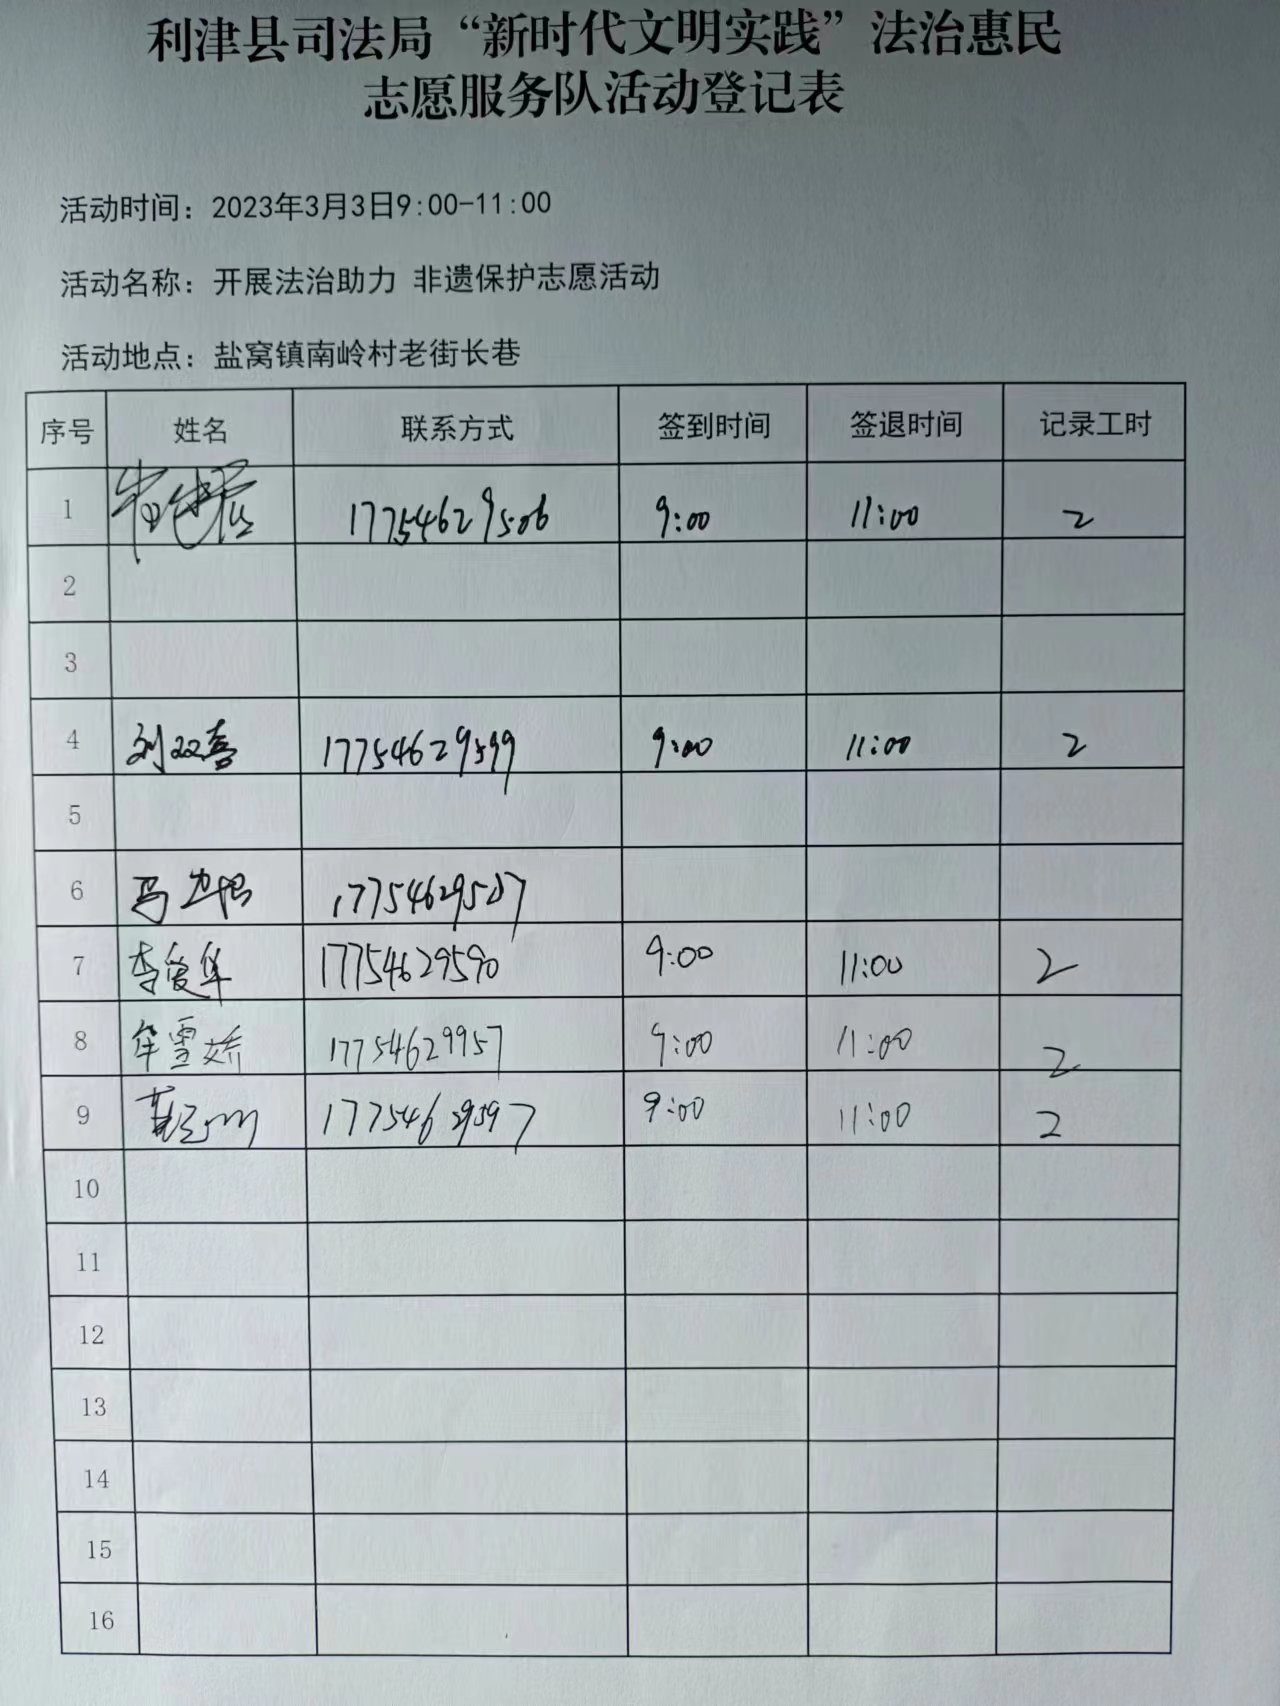 利津县司法局“新时代文明实践”法治惠民
志愿服务队活动登记表
活动时间：2023年3月3日9:00-11:00
活动名称：开展法治助力 非遗保护志愿活动
活动地点：盐窝镇南岭村老街长巷
序号 姓名 联系方式 签到时间 签退时间 记录工时
1 17754629506 9:00 11:00 2
2
3
4 刘双喜 17754629599 9:00 11:00 2
5
6 17754629507
7 李爱华 17754629590 9:00 11:00 2
8 牟雪娇 17754629957 9:00 11:00 2
9 17754629597 9:00 11:00 2
10
11
12
13
14
15
16